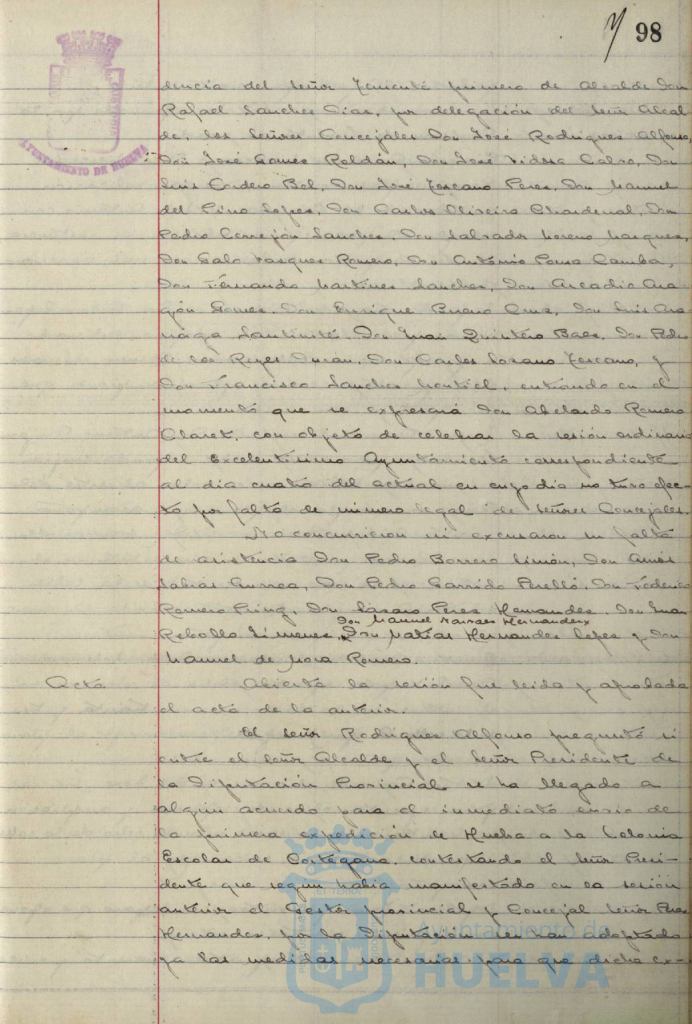 98
AYUNTAMIENTO DE HUELVA
dencia del Señor Teniente primero de Alcalde Don
Rafael Sanchez Diaz, por delegación del Señor Alcal-
de, los Señores Concejales Don José Rodriguez Alfonso,
Don José Gomez Roldán, Don José Vidosa Calvo, Don
Luis Cordero Bel, Don José Toscano Perez, Don Manuel
del Pino Lopez, Don Carlos Oliveira Chardenal, Don
Pedro Cerrejón Sanchez, Don Salvador Moreno Marquez,
Don Galo Vazquez Romero, Don Antonio Ponce Gamba,
Don Fernando Martinez Sanchez, Don Arcadio Ara-
gón Gomez, Don Enrique Bueno Cruz, Don Luis
Don Juan Quintero Baez, Don Pedro
de los Reyes Durán, Don Carlos Lozano Toscano, y
Don Francisco Sanchez Montiel, entrando en el
momento que se expresará Don Abelardo Romero
Claret, con objeto de celebrar la sesión ordinaria
del Excelentísimo Ayuntamiento correspondiente
al dia cuatro del actual en cuyo dia no tuvo efec-
to por falta de número legal de Señores Concejales.
No concurrieron ni excusaron su falta
de asistencia Don Pedro Borrero Limón, Don Amós
Sabrás Gurrea, Don Pedro Garrido Perelló, Don Federico
Romero Don Lázaro Perez Hernandez, Don Juan
Don Manuel Narvaez Hernandez
Rebollo Jimenez, Don Matias Hernandez Lopez y Don
Manuel de Mora Romero.
Acta
Abierta la sesión fue leida y aprobada
el acta de la anterior.
El Señor Rodriguez Alfonso preguntó si
entre el Señor Alcalde y el Señor Presidente de
la Diputación Provincial se ha llegado a
algún acuerdo para el inmediato envio de
la primera expedición de Huelva a la Colonia
Escolar de Cortegana, contestando el Señor Presi-
dente que segun habia manifestado en la sesión
anterior el Gestor provincial y Concejal Señor Perez
Hernandez, por la Diputación se han adoptado
ya las medidas necesarias para que dicha ex-
Ayuntamiento de
HUELVA